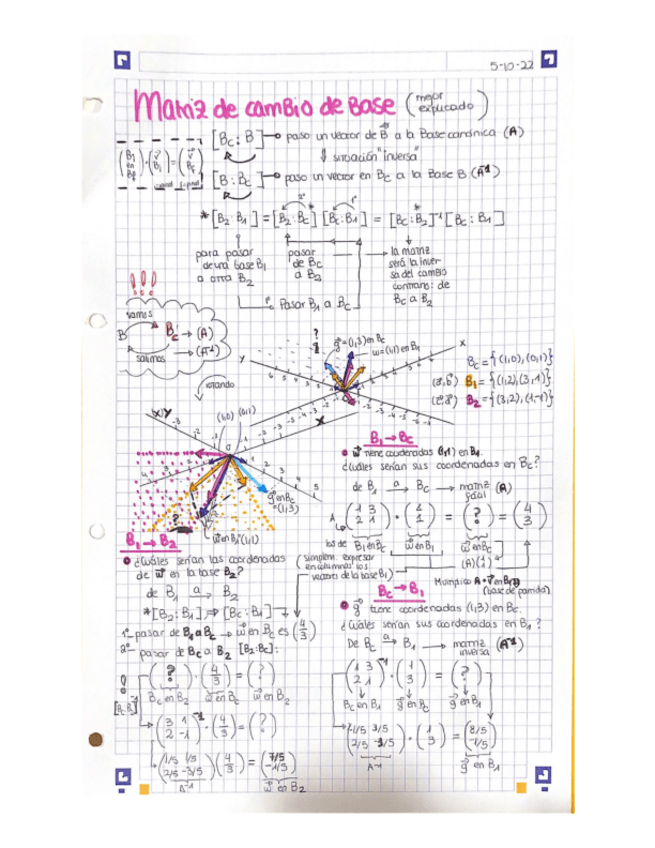 5-10-22
Matriz de cambio de Base (mejor explicado)
[Bc : B] → paso un vector de B a la Base canónica (A)
⇓ situación "inversa"
[B : Bc] → paso un vector en Bc a la Base B (A⁻¹)
*[B2 : B1] = [B2 : Bc] [Bc : B1] = [Bc : B2]⁻¹ [Bc : B1]
para pasar de una base B1 a otra B2
pasar de Bc a B2
la matriz será la inversa del cambio contrario: de Bc a B2
1º Pasar B1 a Bc
!!!
vamos
B Bc → (A)
salimos → (A⁻¹)
rotando
g = (1,3) en Bc
w = (1,1) en B1
Bc = {(1,0), (0,1)}
B1 = {(1,2), (3,1)}
B2 = {(3,2), (1,-1)}
X Y
(1,0) (0,1)
g en Bc = (1,3)
w en B1 (1,1)
B1 → Bc
w tiene coordenadas (1,1) en B1
¿Cuáles serían sus coordenadas en Bc?
de B1 a→ Bc → matriz (A)
A (1 3 / 2 1) · (1 / 1) = (?) = (4 / 3)
B1 en Bc w en B1 w en Bc
(simplem. expresar en columnas los vectores de la base B1)
(base de partida)
B1 → B2
¿Cuáles serían las coordenadas
de w en la base B2?
de B1 a→ B2
*[B2 : B1] ⇒ [Bc : B1]
1º- pasar de B1 a Bc → w en Bc es (4 / 3)
2º- pasar de Bc a B2 [B2 : Bc] :
(?) · (4 / 3) = (?)
Bc en B2 w en Bc w en B2
(3 1 / 2 -1)⁻¹ · (4 / 3) = (?)
(1/5 1/5 / 2/5 -3/5) (4 / 3) = (7/5 / -1/5)
A⁻¹ w en B2
Bc → B1
g tiene coordenadas (1,3) en Bc.
¿Cuáles serían sus coordenadas en B1?
De Bc a→ B1 → matriz inversa (A⁻¹)
(1 3 / 2 1)⁻¹ · (1 / 3) = (?)
Bc en B1 g en Bc g en B1
(-1/5 3/5 / 2/5 -1/5) · (1 / 3) = (8/5 / -1/5)
A⁻¹ g en B1